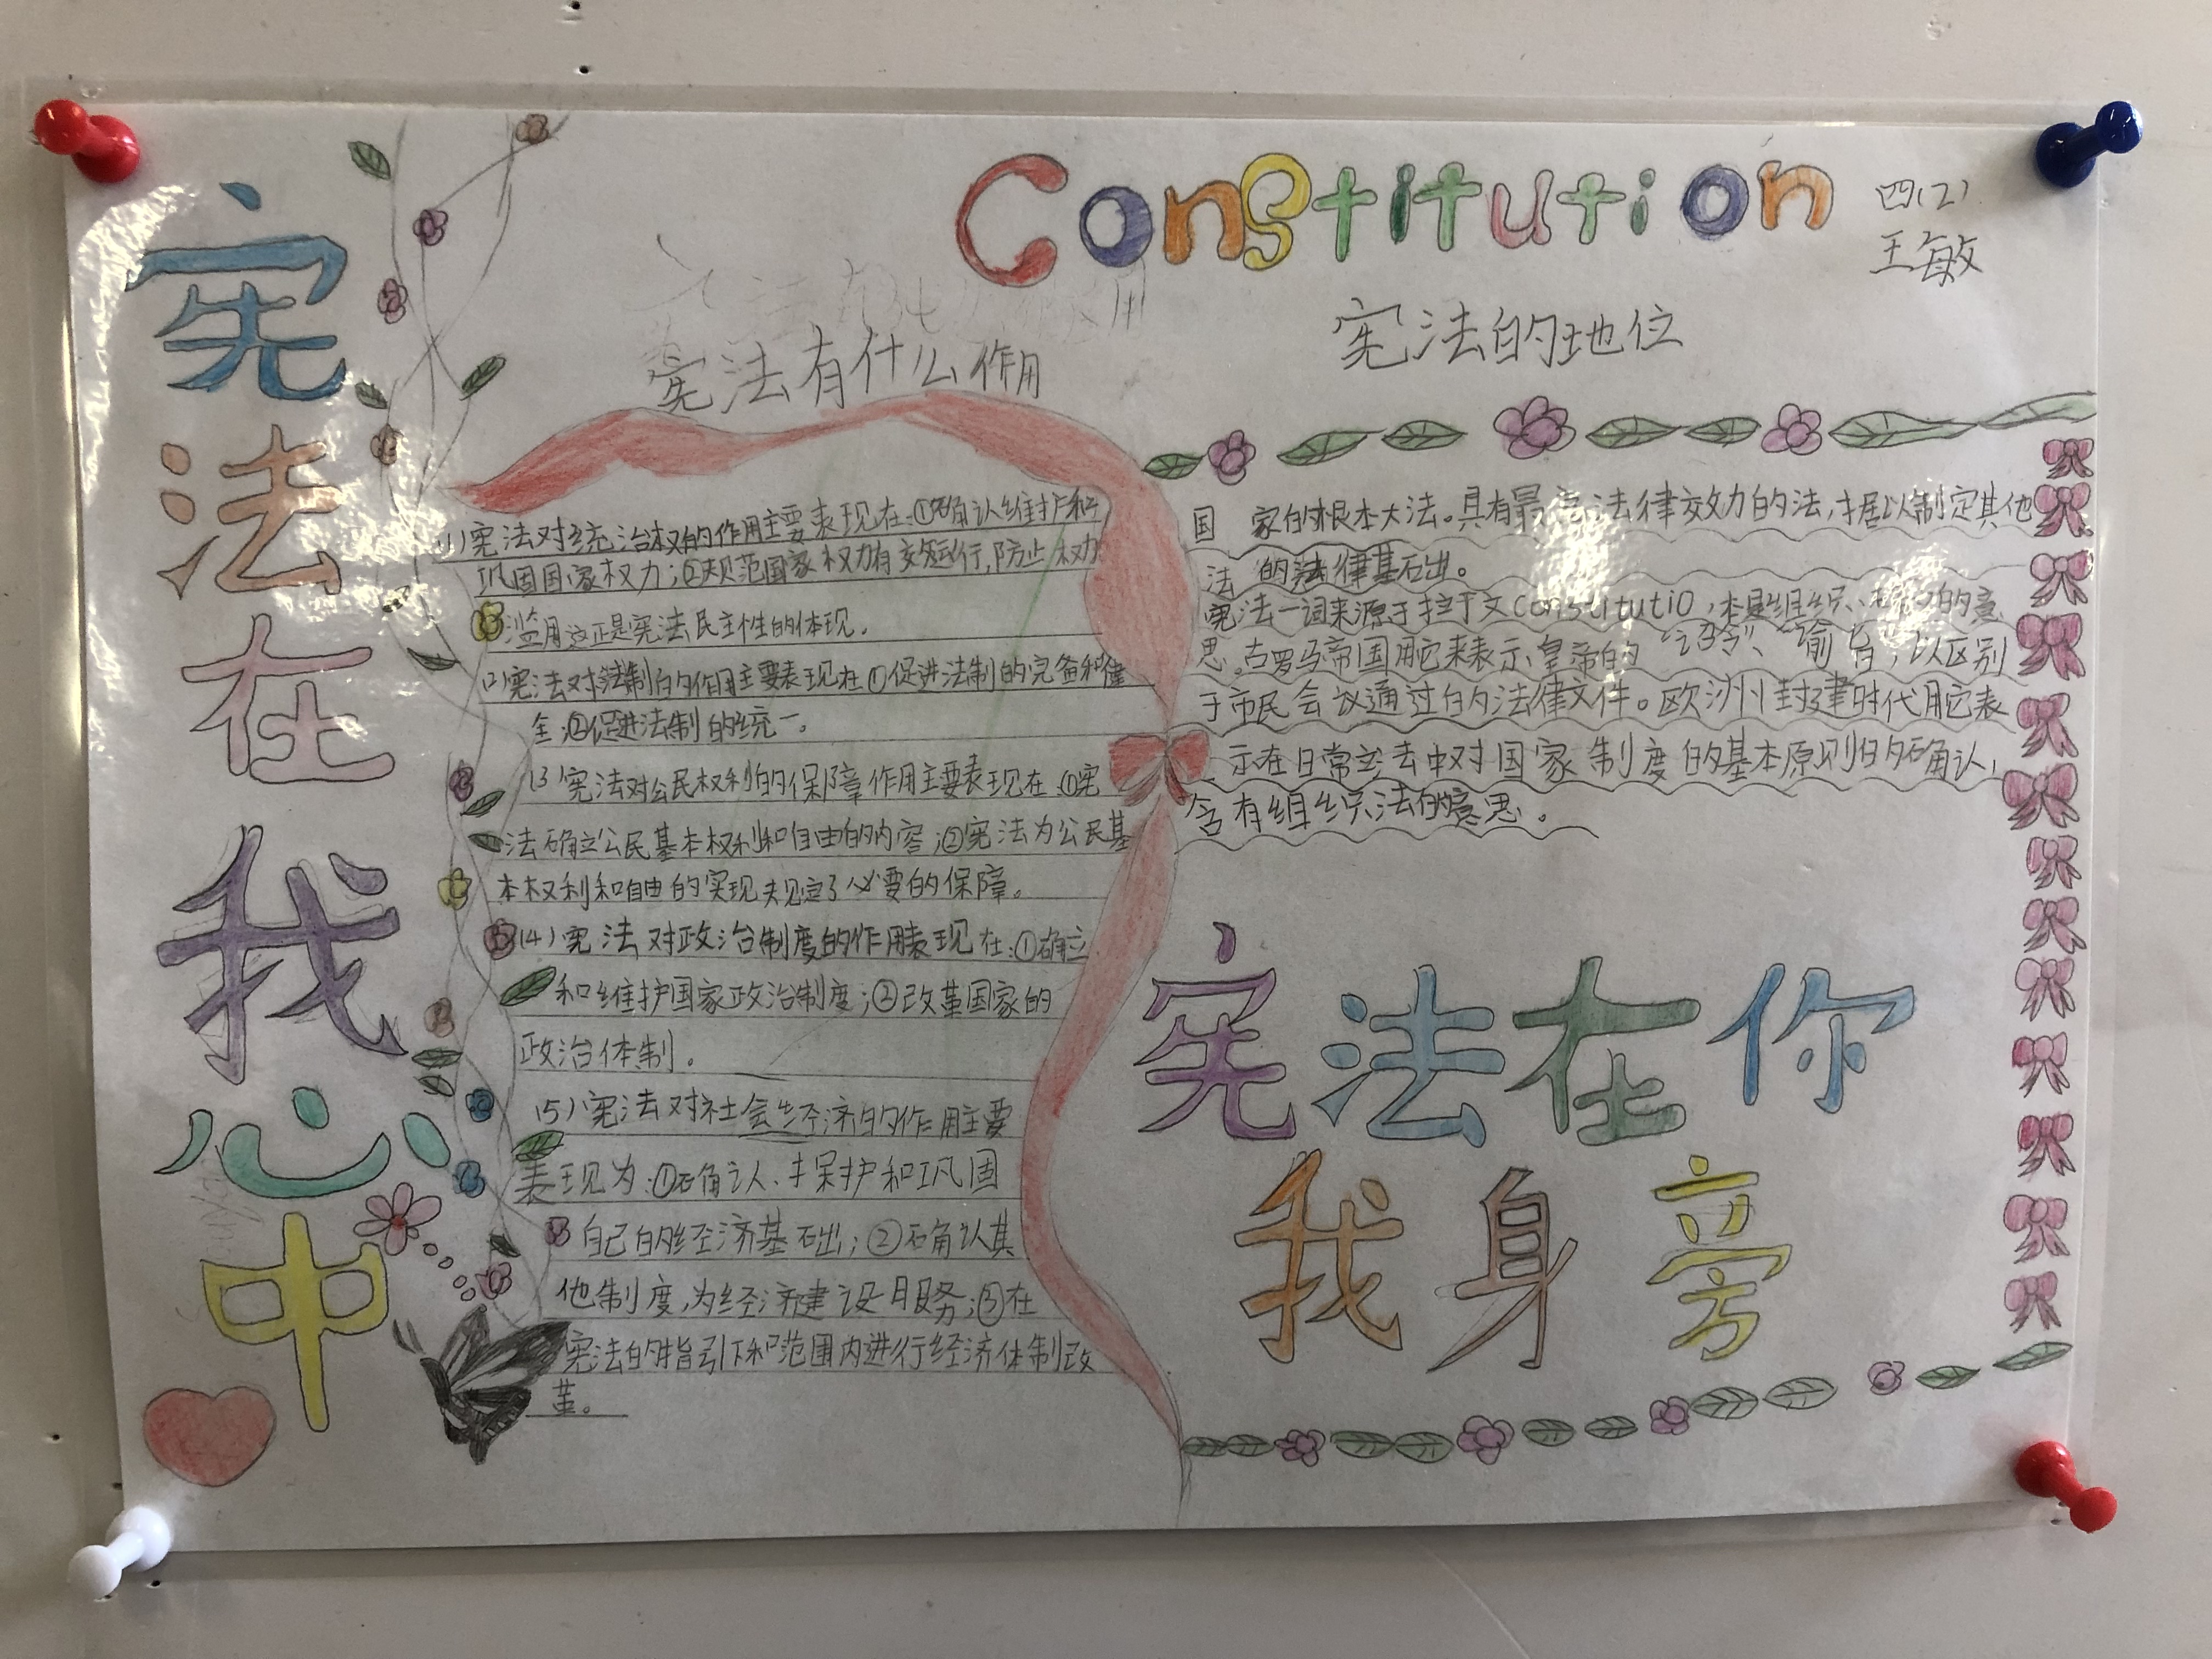 宪法在我心中
Constitution
四(2)
王敏
宪法有什么作用
(1)宪法对统治权的作用主要表现在:①确认维护和
巩固国家权力;②规范国家权力有效运行,防止权力
滥用这正是宪法民主性的体现。
(2)宪法对法制的作用主要表现在①促进法制的完备和健
全;②促进法制的统一。
(3宪法对公民权利的保障作用主要表现在:①宪
法确立公民基本权利和自由的内容;②宪法为公民基
本权利和自由的实现规定了必要的保障。
(4)宪法对政治制度的作用表现在:①确立
和维护国家政治制度;②改革国家的
政治体制。
(5)宪法对社会经济的作用主要
表现为:①确认、保护和巩固
自己的经济基础;②确认其
他制度,为经济建设服务;③在
宪法的指引下和范围内进行经济体制改
革。
宪法的地位
国 家的根本大法。具有最高法律效力的法,据以制定其他
法 的法律基础。
宪法一词来源于拉丁文constitutio,本是组织、的意
思。古罗马帝国用它来表示皇帝的“诏令”、“谕旨”,以区别
于市民会议通过的法律文件。欧洲封建时代用它表
示在日常立法中对国家制度的基本原则的确认,
含有组织法的意思。
宪法在你
我身旁